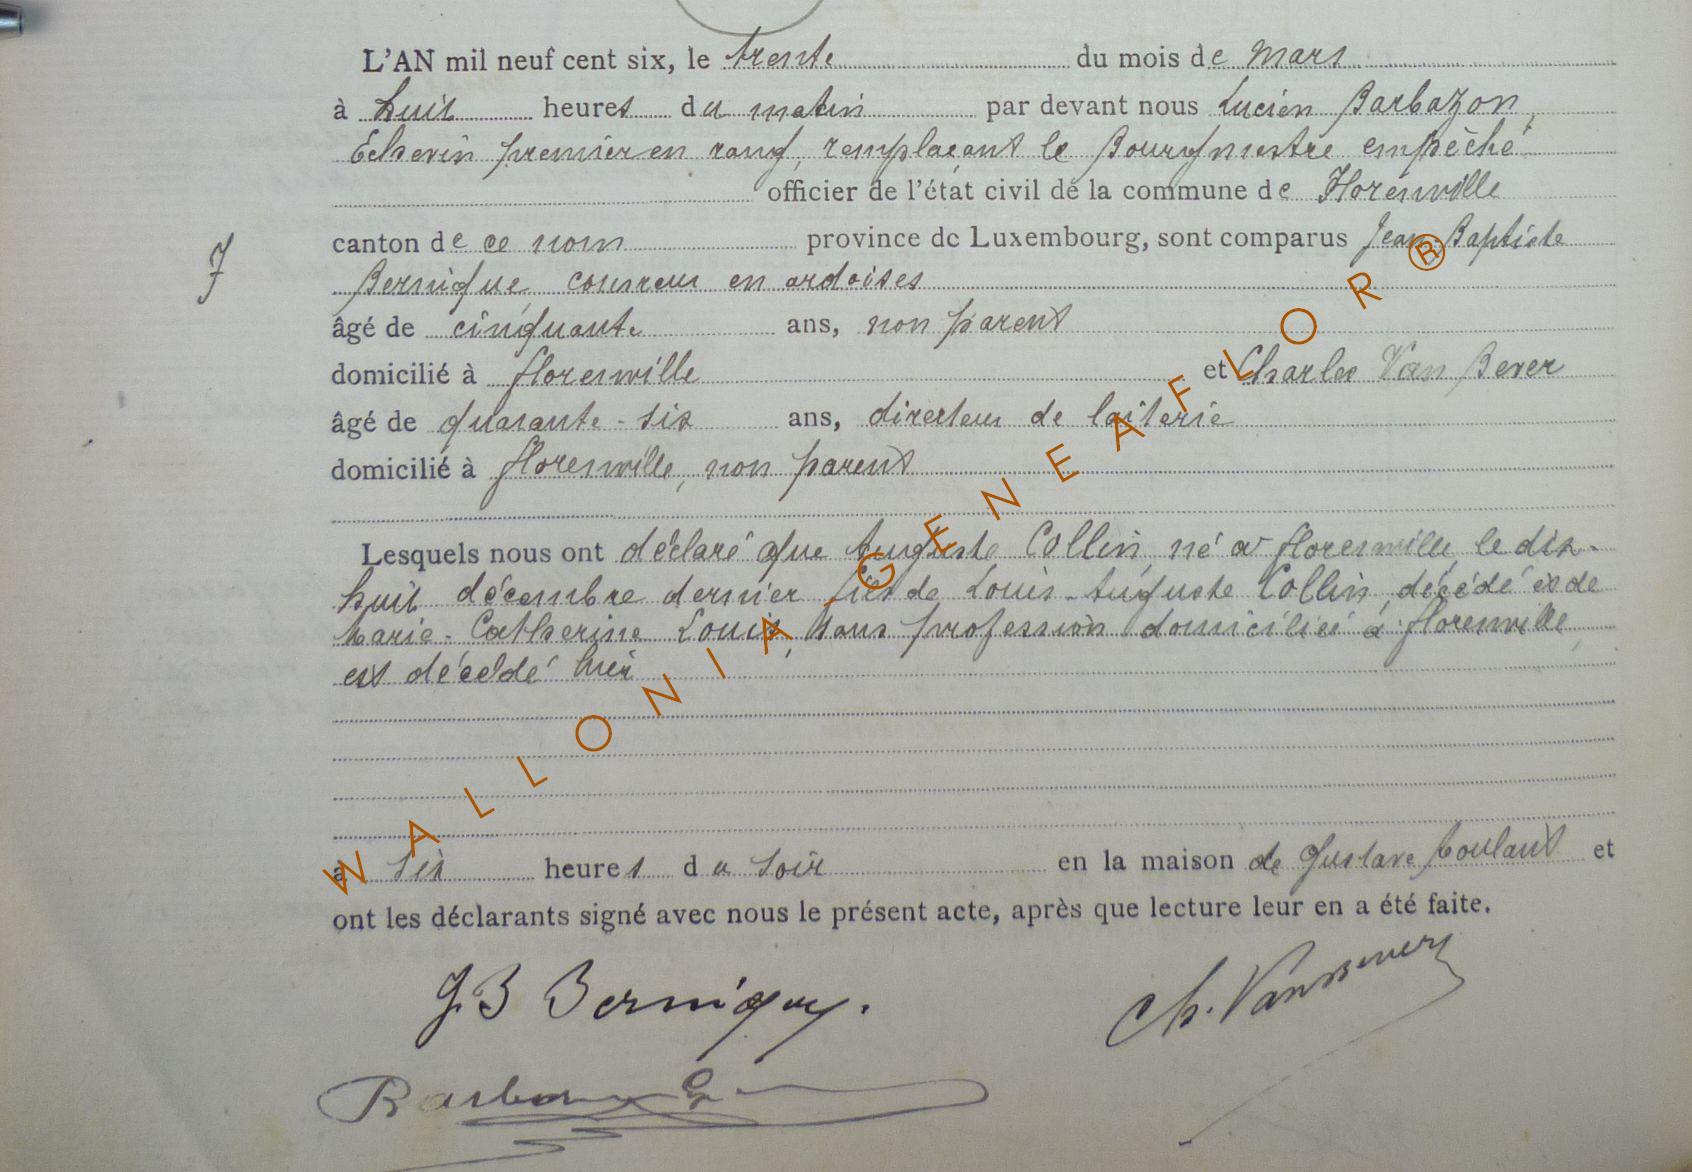 L'AN mil neuf cent six, le trente du mois de mars
à huit heures du matin par devant nous Lucien Barbazon,
Echevin premier en rang, remplaçant le Bourgmestre empêché
officier de l'état civil de la commune de Florenville
canton de ce nom province de Luxembourg, sont comparus Jean-Baptiste
7
Bernique, couvreur en ardoises
âgé de cinquante ans, non parent
domicilié à Florenville et Charles Van Bever
âgé de quarante-six ans, directeur de laiterie
domicilié à Florenville, non parent
Lesquels nous ont déclaré que Auguste Collin, né à Florenville, le dix-
huit décembre dernier fils de Louis-Auguste Collin, décédé et de
Marie-Catherine Louis, sans profession domiciliée à Florenville,
est décédé hier
à six heures du soir en la maison de Gustave et
ont les déclarants signé avec nous le présent acte, après que lecture leur en a été faite.
JB Bernique.
Ch. Van Bever
Barbazon
WALLONIA-GENEAFLOR®